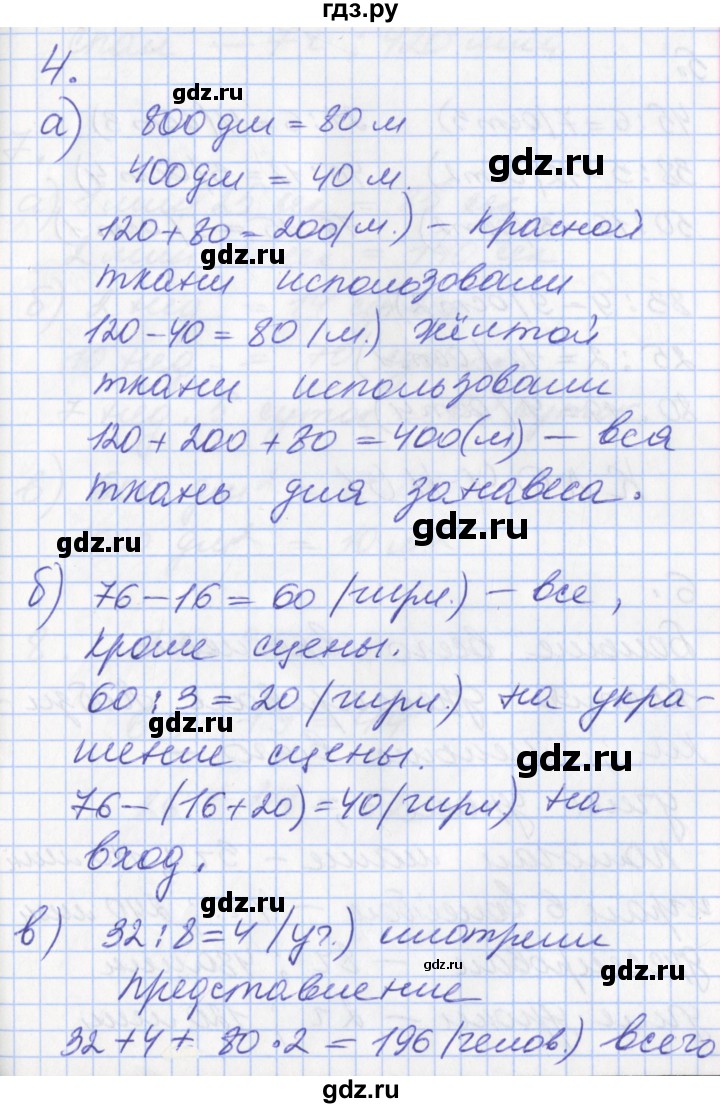 гдз.ру
4.
gdz.ru
а) 800 дм = 80 м
400 дм = 40 м.
gdz.ru
120 + 80 = 200 (м.) – красной
ткани использовали
120 – 40 = 80 (м.) жёлтой
ткани использовали
120 + 200 + 80 = 400 (м) – вся
ткань для занавеса.
gdz.ru
gdz.ru
б) 76 – 16 = 60 (гирл.) – все,
кроме сцены.
60 : 3 = 20 (гирл.) на укра-
шение сцены.
gdz.ru
76 – (16 + 20) = 40 (гирл) на
вход.
gdz.ru
в) 32 : 8 = 4 (уч.) смотрели
gdz.ru
gdz.ru
представление
32 + 4 + 80 · 2 = 196 (челов.) всего
gdz.ru